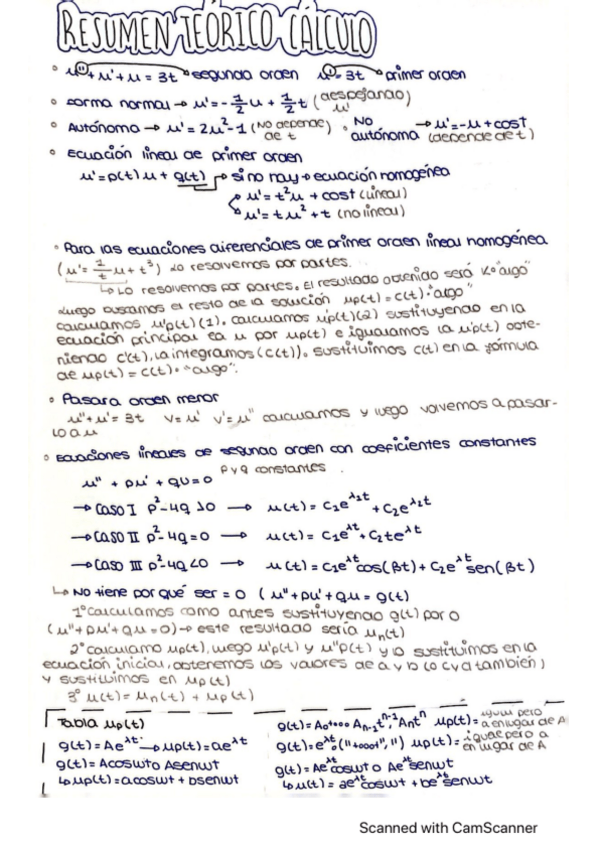 RESUMEN TEÓRICO CÁLCULO
• u''+u'+u = 3t → segundo orden   u' = 3t → primer orden
• Forma normal → u' = -1/2 u + 1/2 t (despejando u')
• Autónoma → u' = 2u²-1 (No depende de t)   • No autónoma → u' = -u + cost (depende de t)
• Ecuación lineal de primer orden
u' = p(t)u + q(t) → si no hay → ecuación homogénea
u' = t²u + cost (lineal)
u' = tu² + t (no lineal)
• Para las ecuaciones diferenciales de primer orden lineal homogénea
(u' = 1/t u + t³) lo resolvemos por partes.
↳ Lo resolvemos por partes. El resultado obtenido será K·"algo"
Luego buscamos el resto de la solución up(t) = c(t)·"algo"
calculamos u'p(t)(1). calculamos u'p(t)(2) sustituyendo en la
ecuación principal la u por up(t) e igualamos la u'p(t) obte-
niendo c'(t), la integramos (c(t)). sustituimos c(t) en la fórmula
de up(t) = c(t)·"algo".
• Pasar a orden menor
u''+u' = 3t   v = u'   v' = u'' calculamos y luego volvemos a pasar-
lo a u
• Ecuaciones lineales de segundo orden con coeficientes constantes
u'' + pu' + qu = 0   p y q constantes.
→ CASO I p²-4q>0 → u(t) = C₁e^λ₁t + C₂e^λ₂t
→ CASO II p²-4q=0 → u(t) = C₁e^λt + C₂te^λt
→ CASO III p²-4q<0 → u(t) = C₁e^λt cos(βt) + C₂e^λt sen(βt)
↳ No tiene por qué ser = 0 (u''+pu'+qu = g(t)
1º Calculamos como antes sustituyendo g(t) por 0
(u''+pu'+qu = 0) → este resultado sería un(t)
2º calculamo up(t), luego u'p(t) y u''p(t) y lo sustituimos en la
ecuación inicial, obtenemos los valores de a y b (o c y d también)
y sustituimos en up(t)
3º u(t) = un(t) + up(t)
Tabla up(t)
g(t) = Ae^λt → up(t) = ae^λt
g(t) = Acoswt o Asenwt
↳ up(t) = acoswt + bsenwt
g(t) = A₀+... Aₙ₋₁tⁿ⁻¹, Aₙtⁿ   up(t) = igual pero a en lugar de A
up(t) = igual pero a en lugar de A
g(t) = Ae^λt coswt o Ae^λt senwt
↳ u(t) = ae^λt coswt + be^λt senwt
Scanned with CamScanner